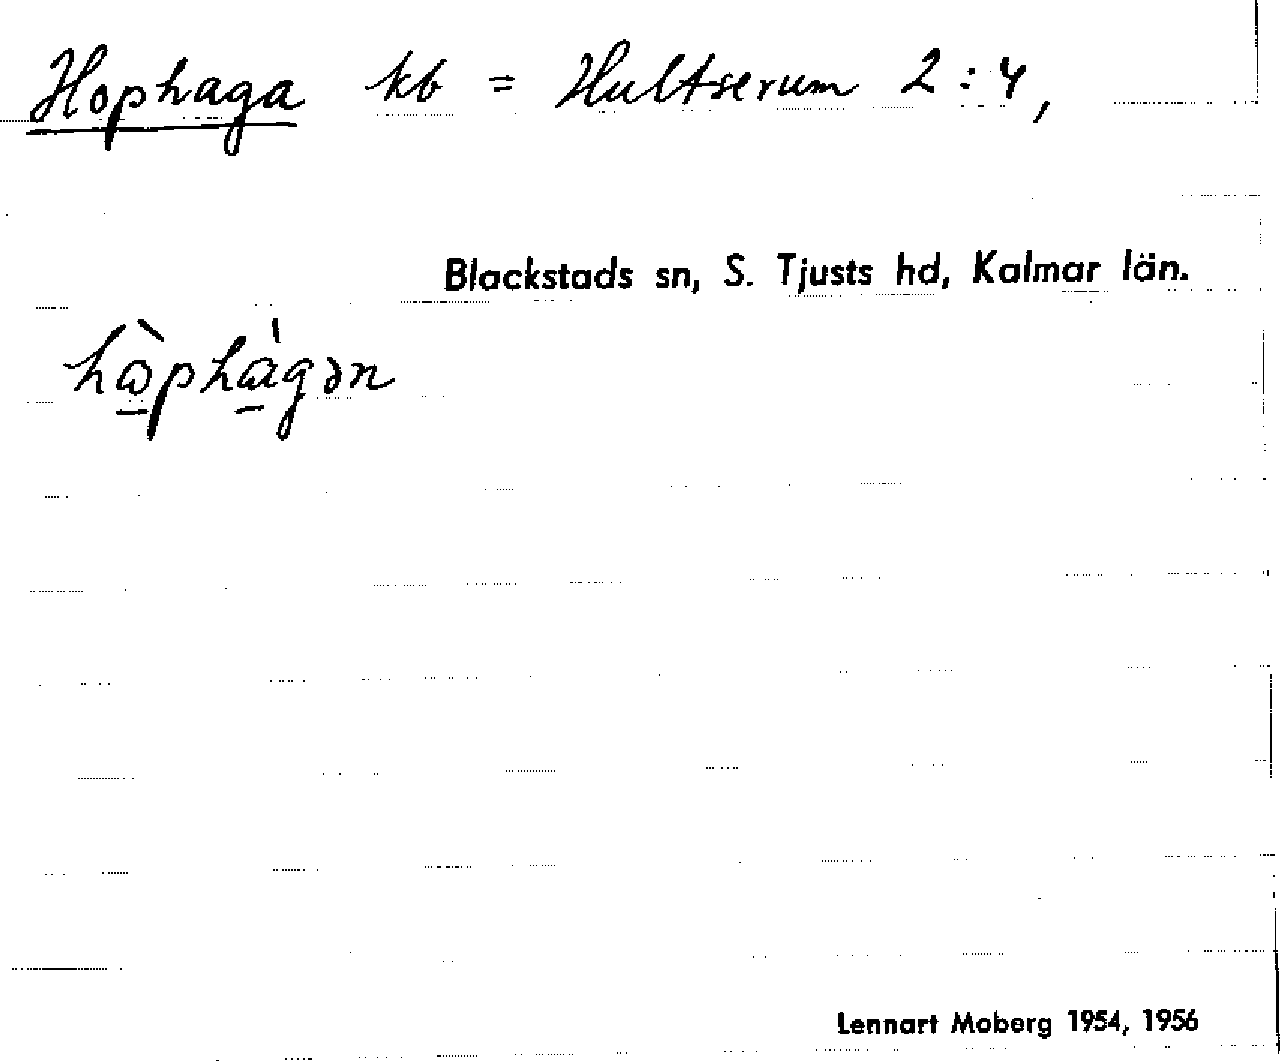 Hophaga kb = Hultserum 2:4,
Blackstads sn, S. Tjusts hd, Kalmar län.
hὼ̱phὰ̱gən
Lennart Moberg 1954, 1956